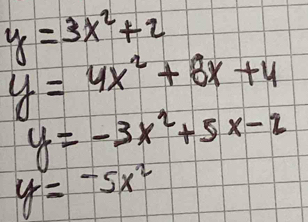 y = 3x² + 2
y = 4x² + 8x + 4
y = -3x² + 5x - 2
y = -5x²